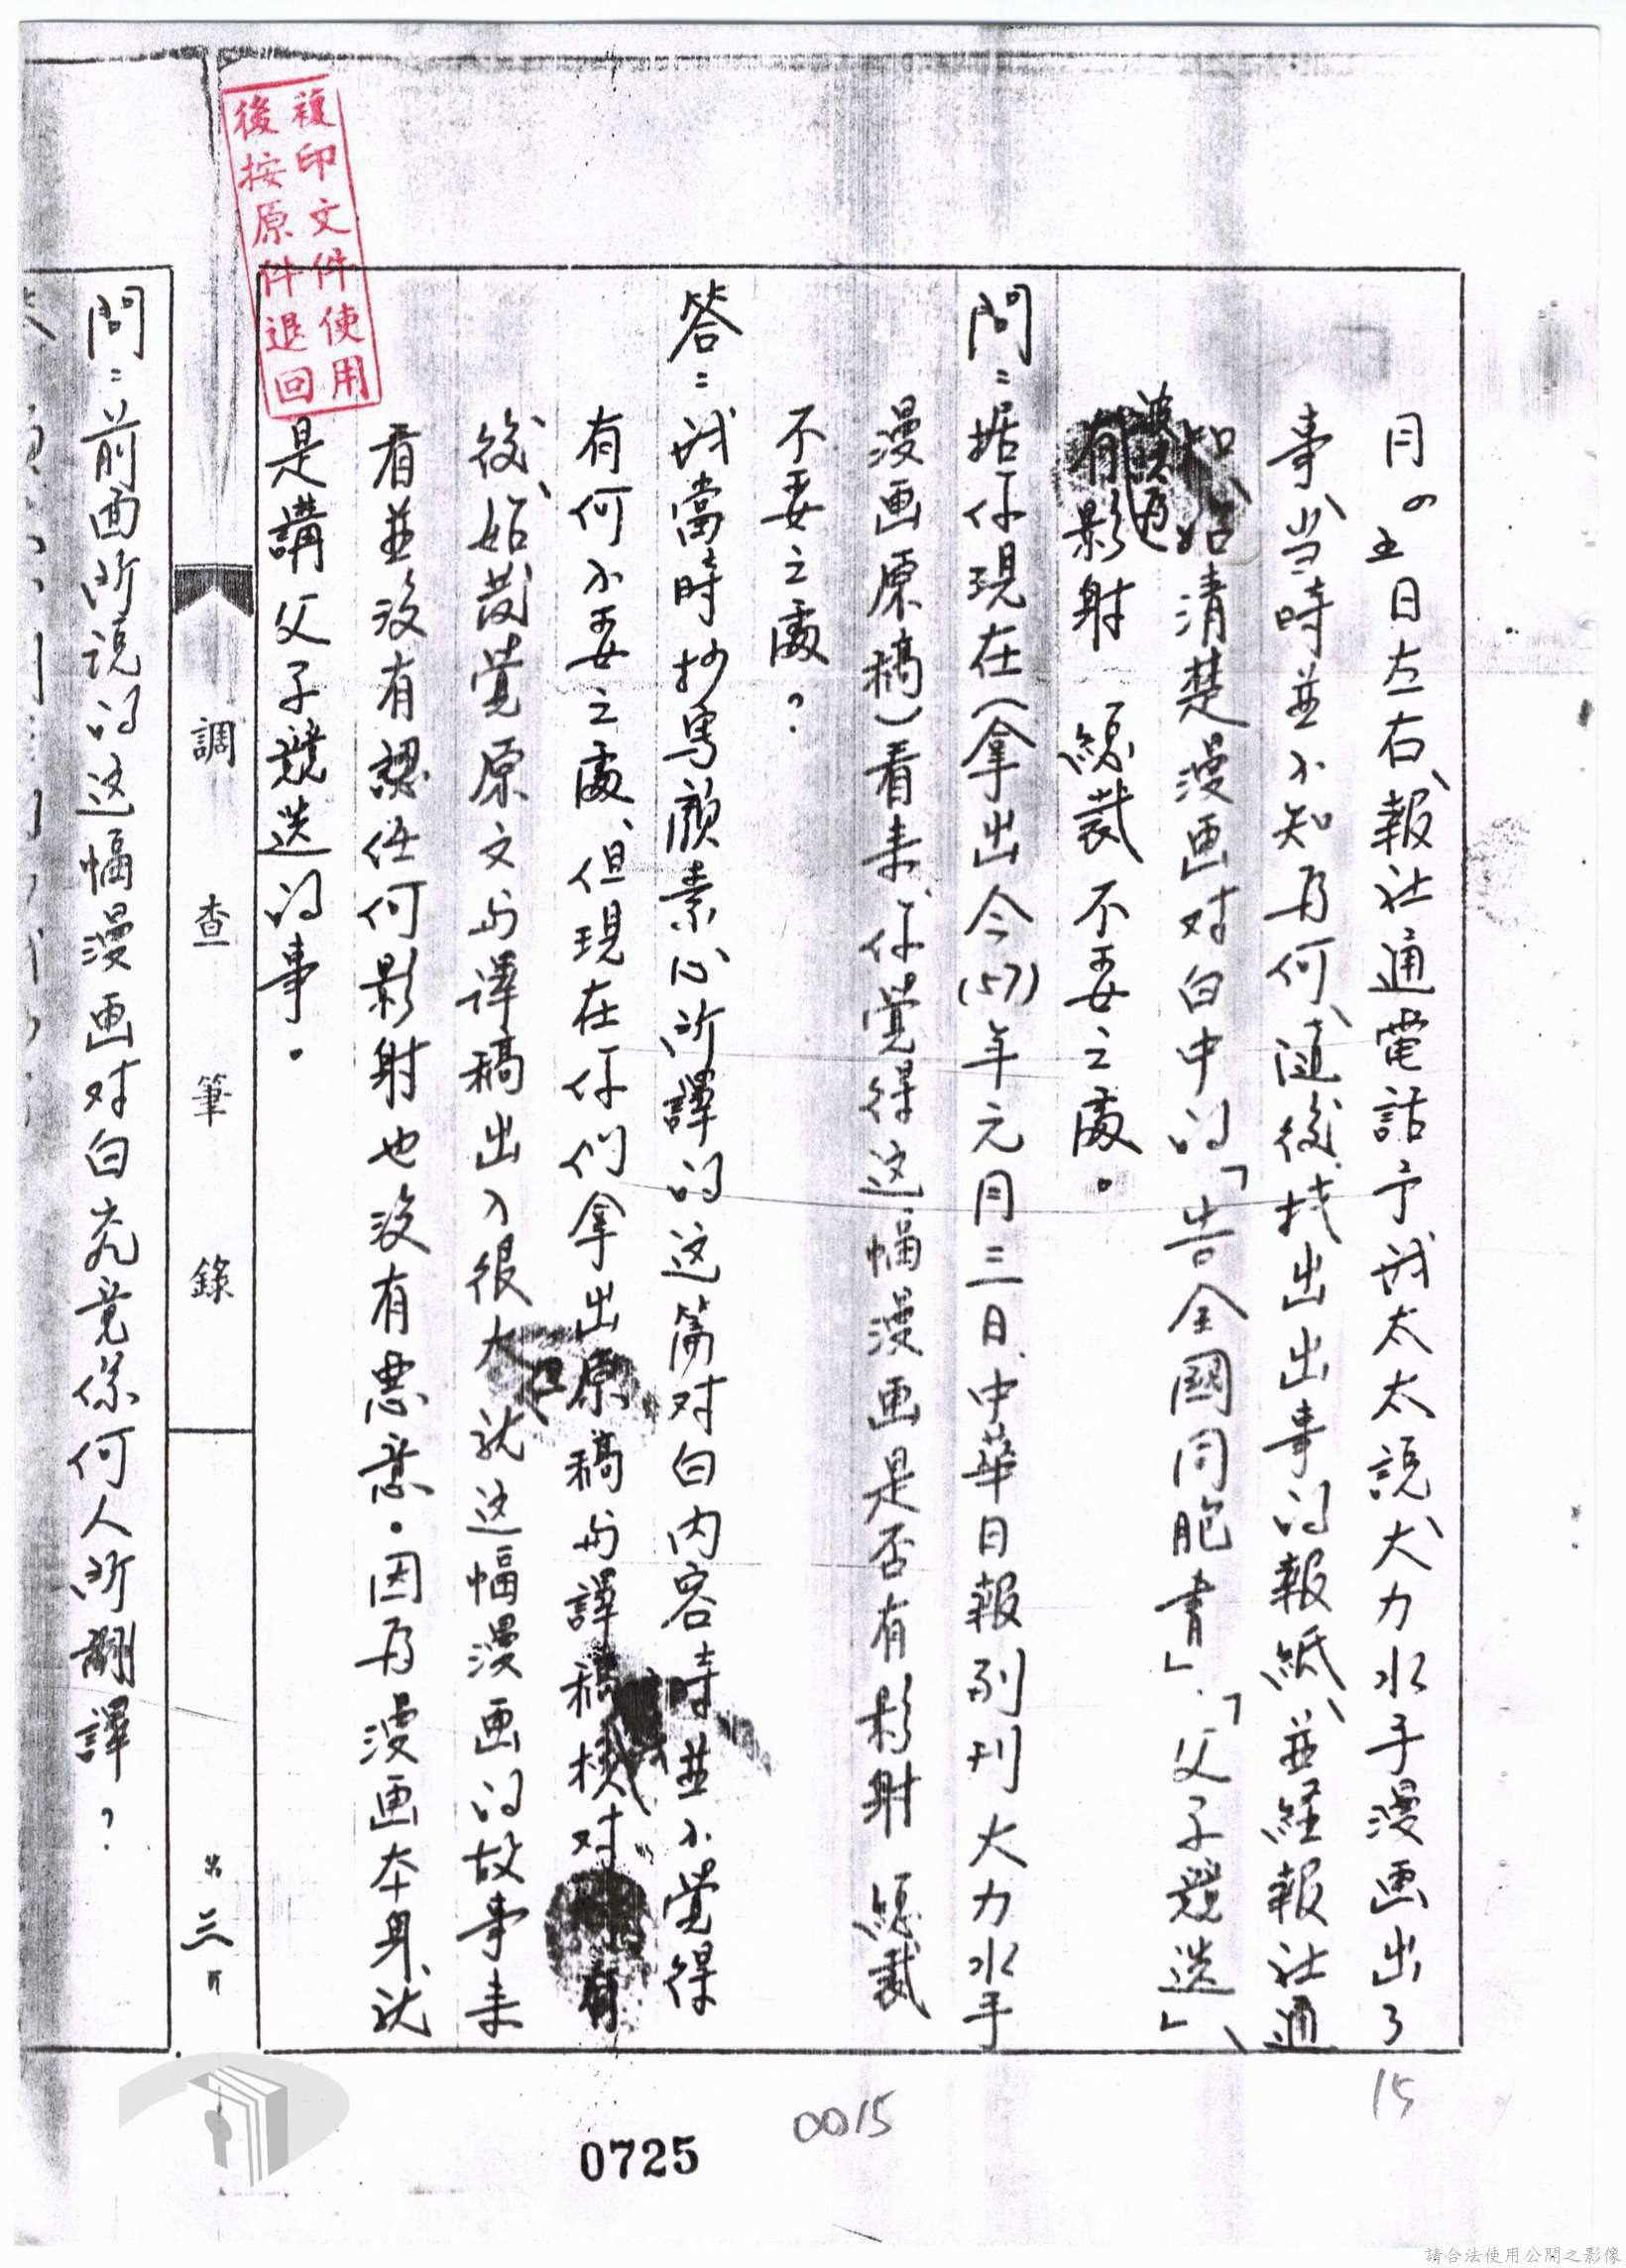 月四、五日左右、報社通電話予我太太說、大力水手漫画出了
事、当時並不知為何、随後找出出事的報紙、並經報社通
知、始清楚漫画对白中的「告全國同胞書」、「父子競选」、
有影射 總裁不妥之處。
問：据你現在(拿出今(57)年元月三日、中華日報副刊大力水手
漫画原稿)看来、你覺得这幅漫画是否有影射 總裁
不妥之處？
答：我當時抄寫顏素心所譯的这篇对白内容時並不覺得
有何不妥之處、但現在你們拿出原稿与譯稿核对
後、始发覺原文与譯稿出入很大、就这幅漫画的故事来
看並沒有認任何影射也沒有惡意。因為漫画本身就
是講父子競选的事。
調查筆錄
第三頁
問：前面所說的这幅漫画对白究竟係何人所翻譯？
複印文件使用
後按原件退回
15
0015
0725
請合法使用公開之影像